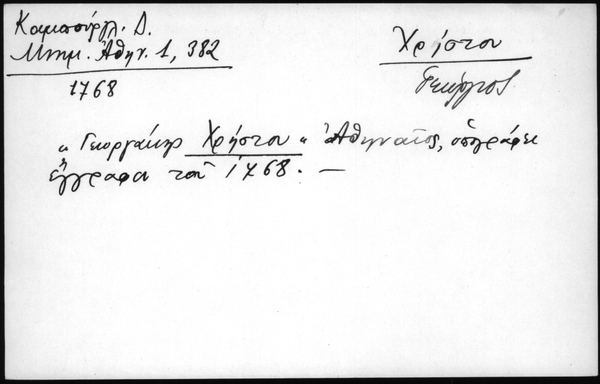 Καμπούργλ. Δ.
Μνημ. Ἀθην. 1, 382
1768
Χρήστου
Γεώργιος
"Γεωργάκης Χρήστου" Ἀθηναῖος, ὑπογράφει
ἔγγραφα τοῦ 1768. —